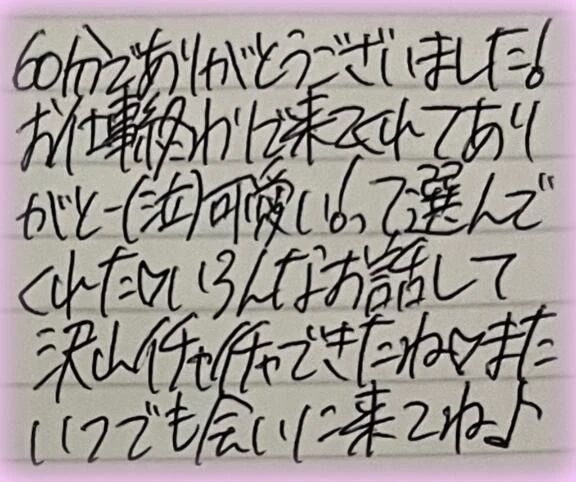 60分でありがとうございました!
お仕事終わりで来てくれてあり
がとー(泣)可愛い!って選んで
くれた♡いろんなお話して
沢山イチャイチャできたね♡また
いつでも会いに来てね♪